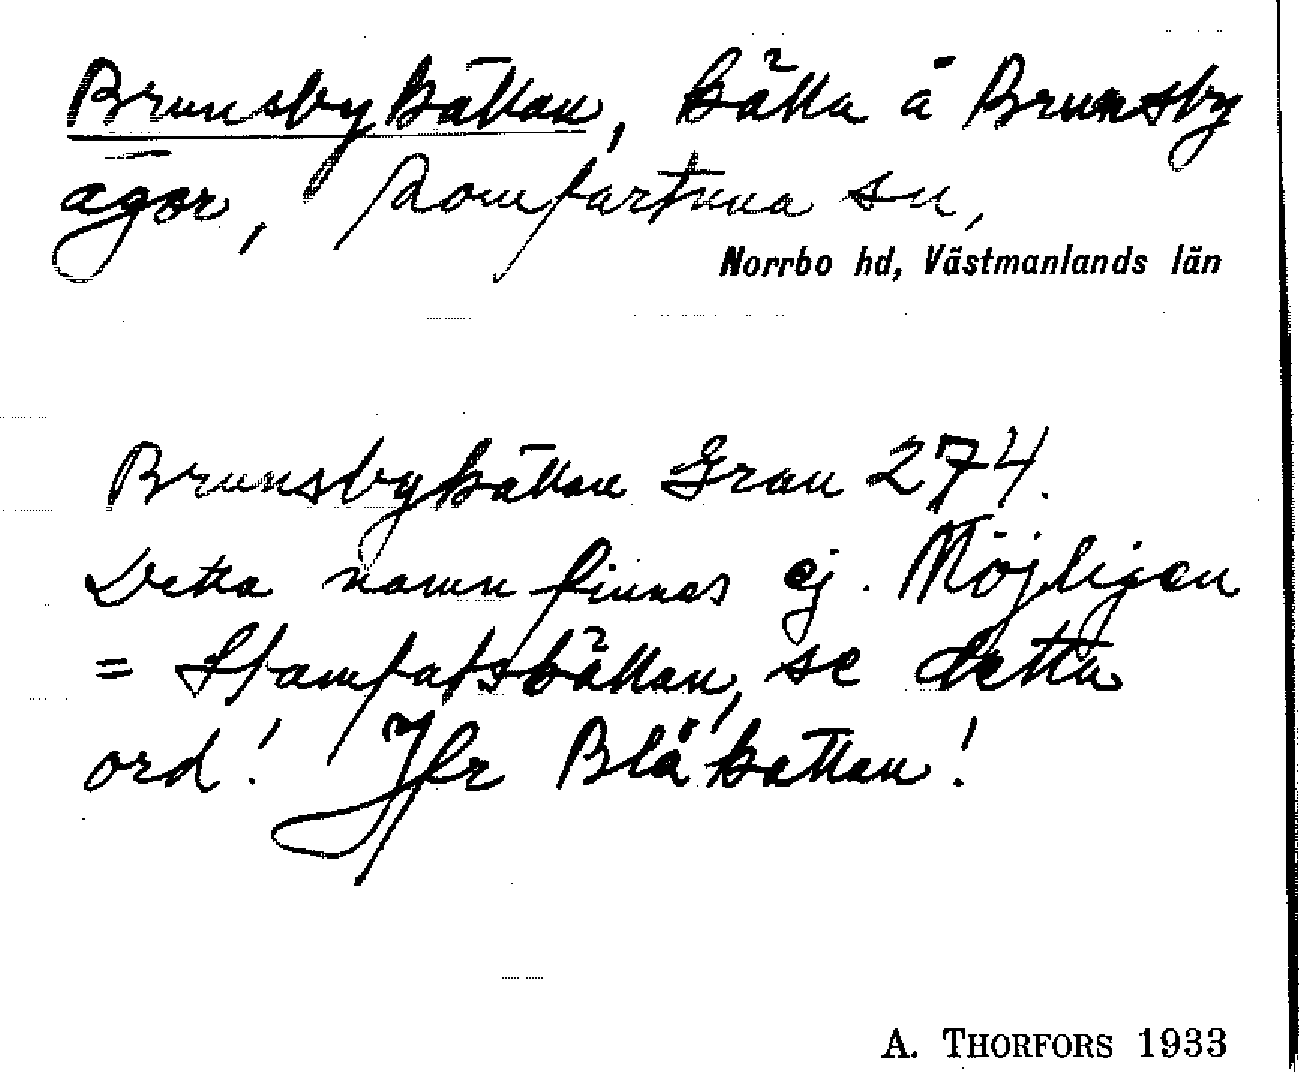 Brunsbykällan, källa å Brunsby
ägor, Romfartuna sn,
Norrbo hd, Västmanlands län
Brunsbykällan Grau 274.
Detta namn finnes ej. Möjligen
= Stamfatskällan, se detta
ord! Jfr Blåkattan!
A. THORFORS 1933